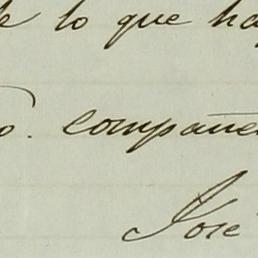 de lo que ha
o. compañe
José